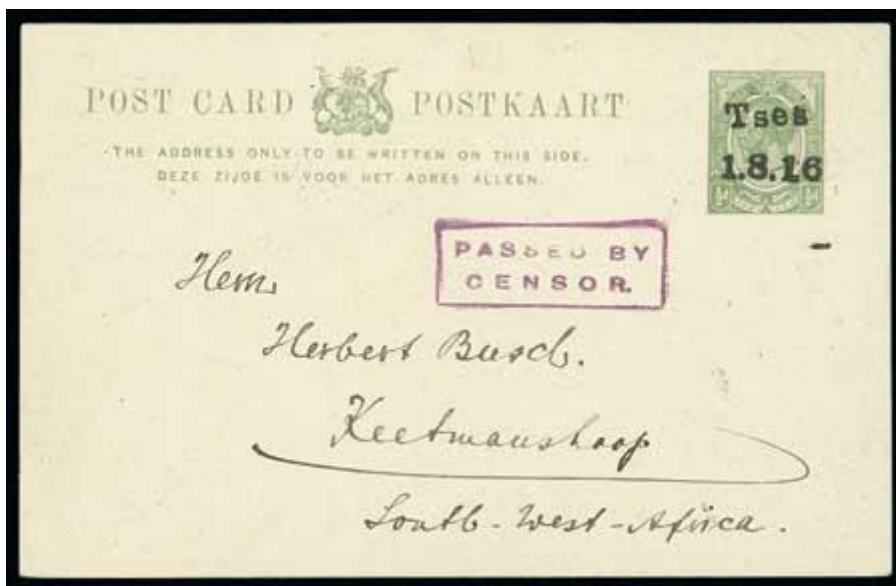 POST CARD POSTKAART
THE ADDRESS ONLY TO BE WRITTEN ON THIS SIDE.
DEZE ZIJDE IS VOOR HET ADRES ALLEEN.
Tses
1.8.16
PASSED BY
CENSOR.
Herrn
Herbert Busch.
Keetmanshoop
South-West-Africa.